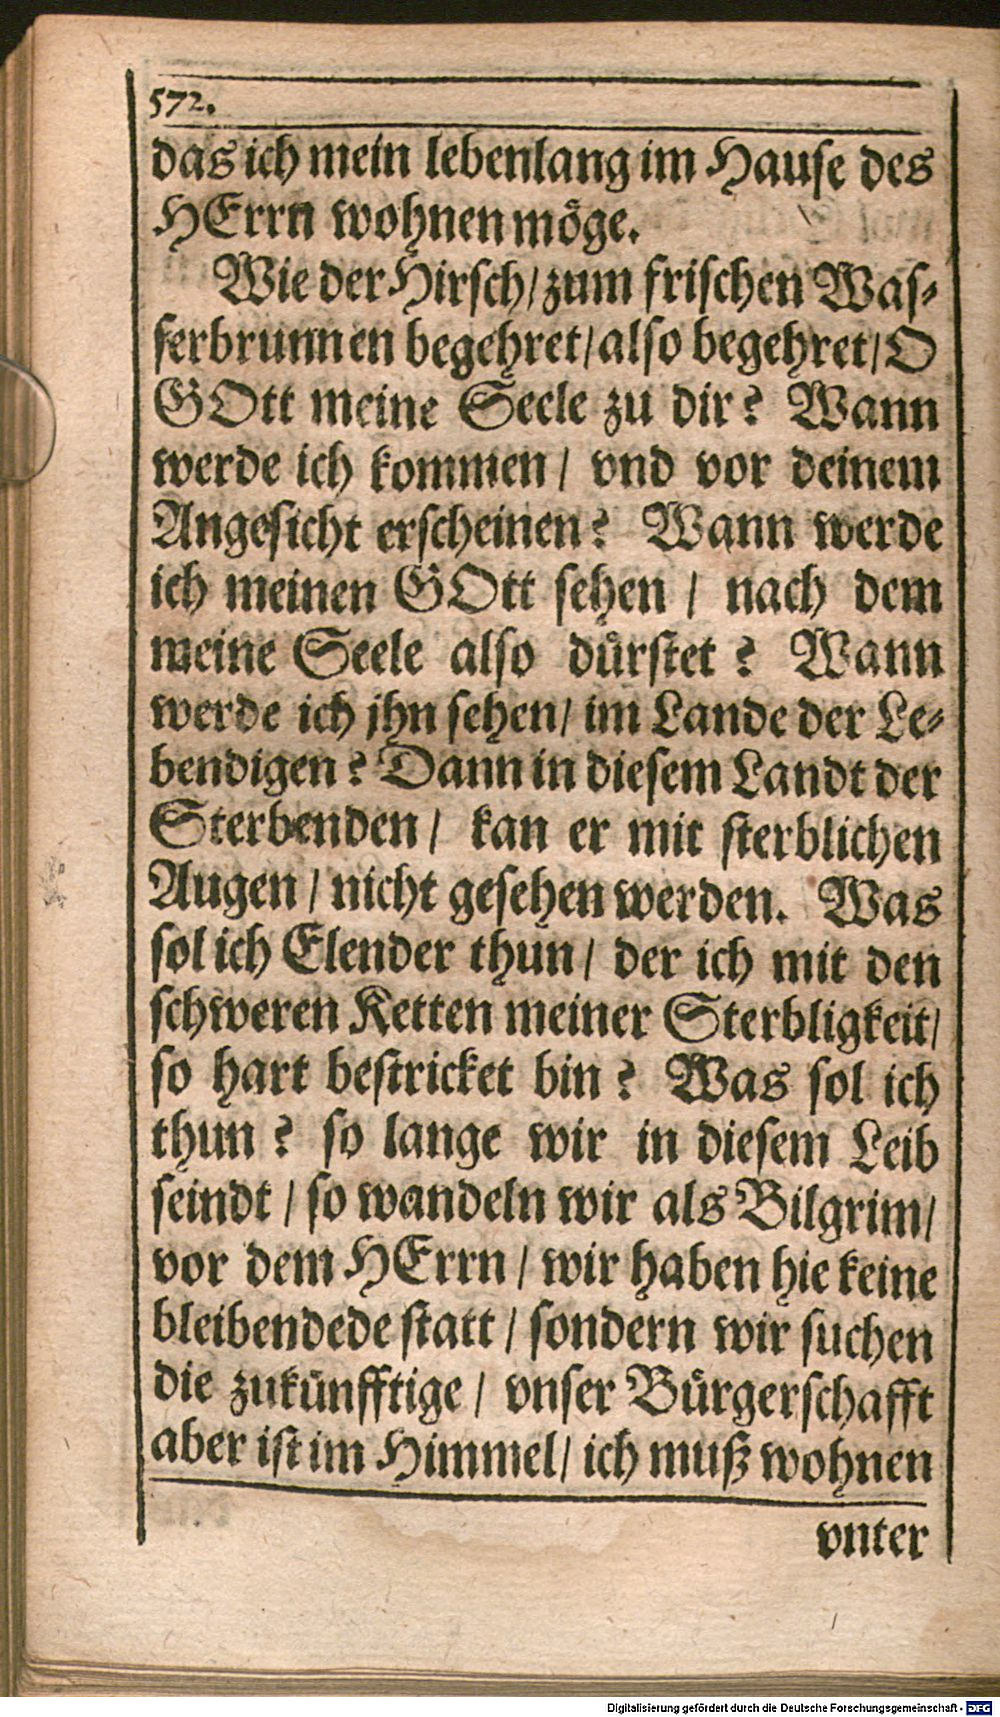 572.
das ich mein lebenlang im Hause des
HErrn wohnen möge.
Wie der Hirsch/ zum frischen Was-
serbrunnen begehret/ also begehret/ O
GOtt meine Seele zu dir? Wann
werde ich kommen/ vnd vor deinem
Angesicht erscheinen? Wann werde
ich meinen GOtt sehen / nach dem
meine Seele also dürstet? Wann
werde ich jhn sehen/ im Lande der Le-
bendigen? Dann in diesem Landt der
Sterbenden/ kan er mit sterblichen
Augen / nicht gesehen werden. Was
sol ich Elender thun/ der ich mit den
schweren Ketten meiner Sterbligkeit/
so hart bestricket bin? Was sol ich
thun? so lange wir in diesem Leib
seindt / so wandeln wir als Bilgrim/
vor dem HErrn / wir haben hie keine
bleibendede statt / sondern wir suchen
die zukünfftige / vnser Bürgerschafft
aber ist im Himmel/ ich muß wohnen
vnter
Digitalisierung gefördert durch die Deutsche Forschungsgemeinschaft - DFG